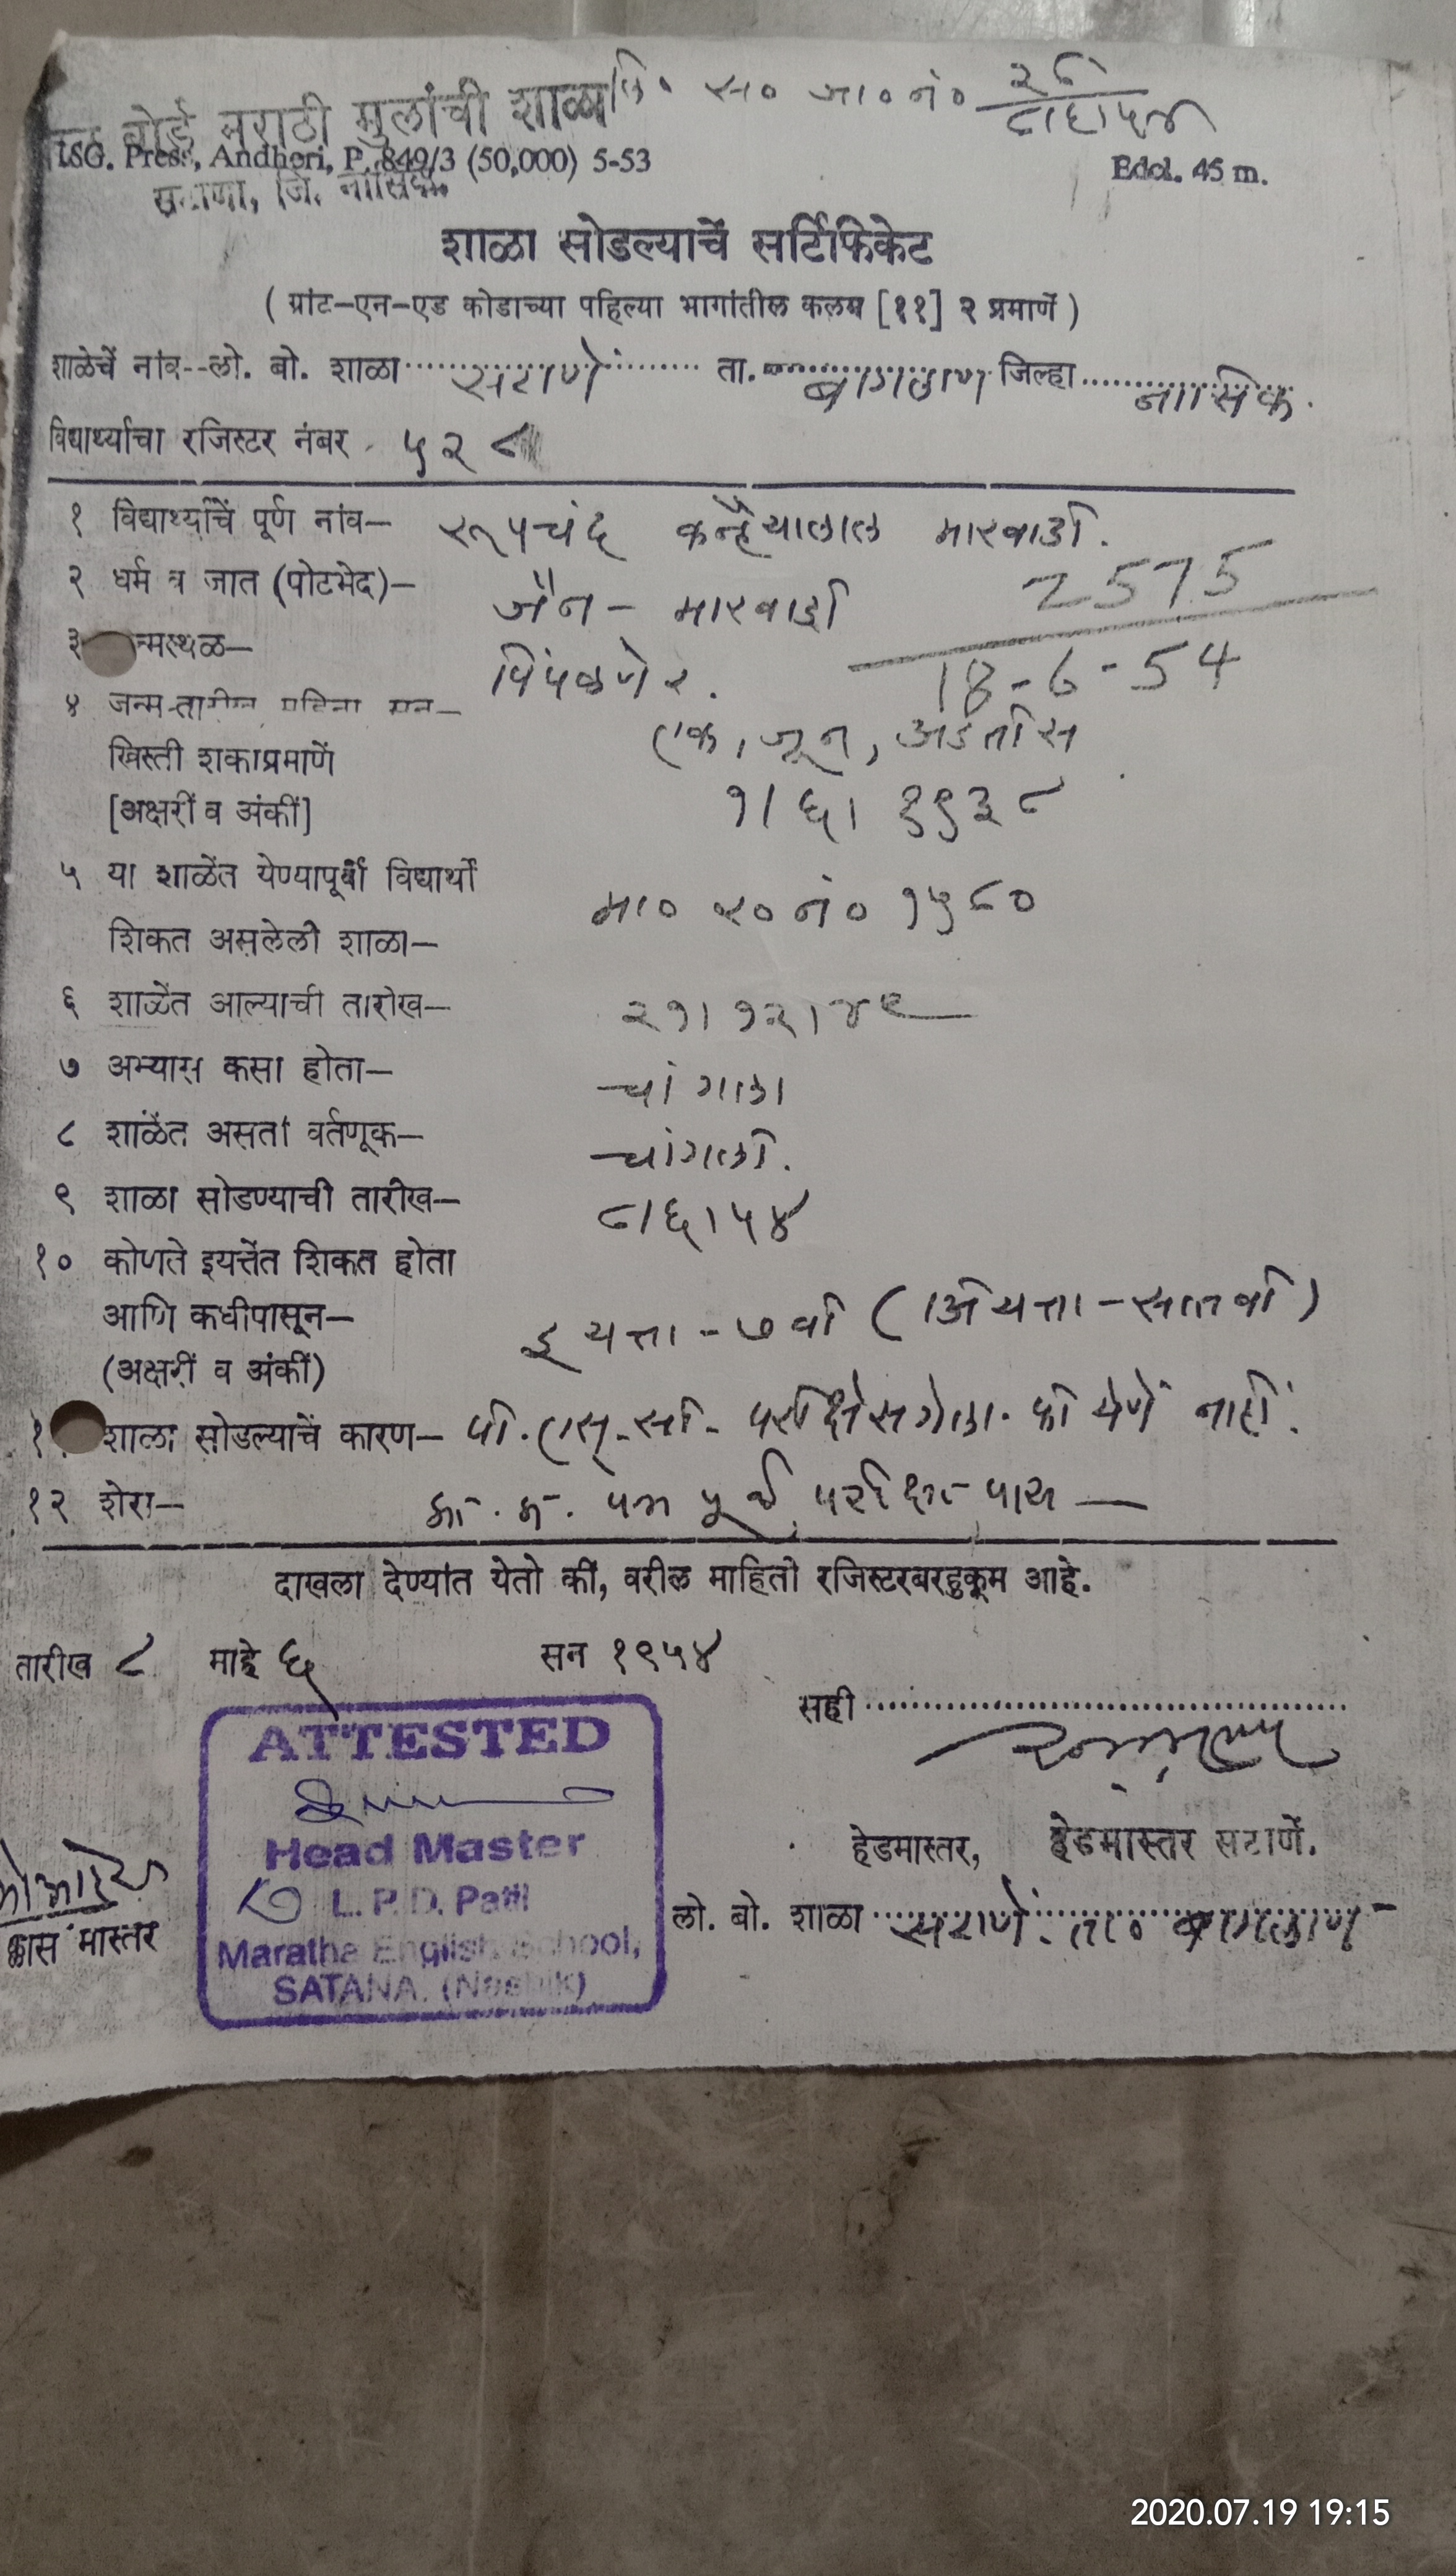 बोर्ड मराठी मुलांची शाळा
स० जा० नं० २८
८।६।५४
LSG. Press, Andheri, P. 849/3 (50,000) 5-53
Edcl. 45 m.
सटाणा, जि. नासिक.
शाळा सोडल्याचें सर्टिफिकेट
( ग्रांट-एन-एड कोडाच्या पहिल्या भागांतील कलम [११] २ प्रमाणें )
शाळेचें नांव--लो. बो. शाळा सटाणें ता. बागलाण जिल्हा नासिक.
विद्यार्थ्याचा रजिस्टर नंबर ५२८
१ विद्यार्थ्याचें पूर्ण नांव— रूपचंद कन्हैयालाल मारवाडी.
२ धर्म व जात (पोटभेद)— जैन - मारवाडी
2575
३ न्मस्थळ— पिंपळणेर.
18-6-54
४ जन्म-तारीख महिना सन—
एक, जून, अडतीस
खिस्ती शकाप्रमाणें
[अक्षरीं व अंकीं] १।६।१९३८
५ या शाळेंत येण्यापूर्वी विद्यार्थी
शिकत असलेली शाळा— मा० र० नं० १५८०
६ शाळेंत आल्याची तारीख— २१।१२।४९
७ अभ्यास कसा होता— चांगला
८ शाळेंत असतां वर्तणूक— चांगली.
९ शाळा सोडण्याची तारीख— ८।६।५४
१० कोणते इयत्तेंत शिकत होता
आणि कधीपासून— इयत्ता - ७ वी (अियत्ता - सातवी)
(अक्षरीं व अंकीं)
१ शाळा सोडल्याचें कारण— पी. एस्. सी. परीक्षेस गेला. फी येणें नाहीं.
१२ शेरा— पूर्व परीक्षा पास —
दाखला देण्यांत येतो कीं, वरील माहिती रजिस्टरबरहुकूम आहे.
तारीख ८ माहे ६ सन १९५४
सही
ATTESTED
Head Master
L. P. D. Patil
Maratha English School,
SATANA. (Nashik)
हेडमास्तर, हेडमास्तर सटाणें.
लो. बो. शाळा सटाणें. ता० बागलाण
क्लास मास्तर
2020.07.19 19:15